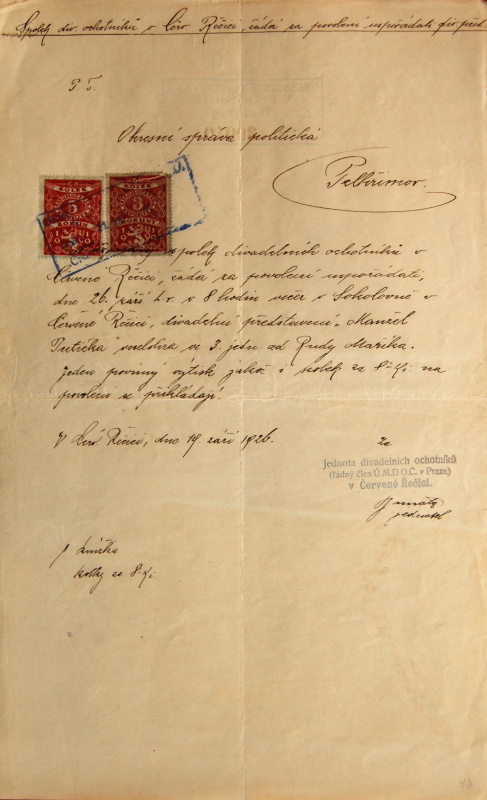 Spolek div. ochotníků v Červ. Řečici, žádá za povolení uspořádati div. před.
P. T.
Okresní správa politická
Pelhřimov.
KOLEK
5
KORUN
1919
KOLEK
3
KORUNY
1919
spolek divadelních ochotníků v
Červené Řečici, žádá za povolení uspořádati,
dne 26. září t.r. v 8 hodin večer v Sokolovně v
Červené Řečici, divadelní představení, „Manžel
Putička" veselohra ve 3. jedn. od Rudy Maříka.
Jeden povinný výtisk jakož i kolek za 8 Kč. na
povolení se přikládají.
V Červ. Řečici, dne 19. září 1926.
Za
Jednota divadelních ochotníků
(řádný člen Ú.M.D.O.Č. v Praze)
v Červené Řečici.
jednatel
1 knížka
kolky za 8 Kč.